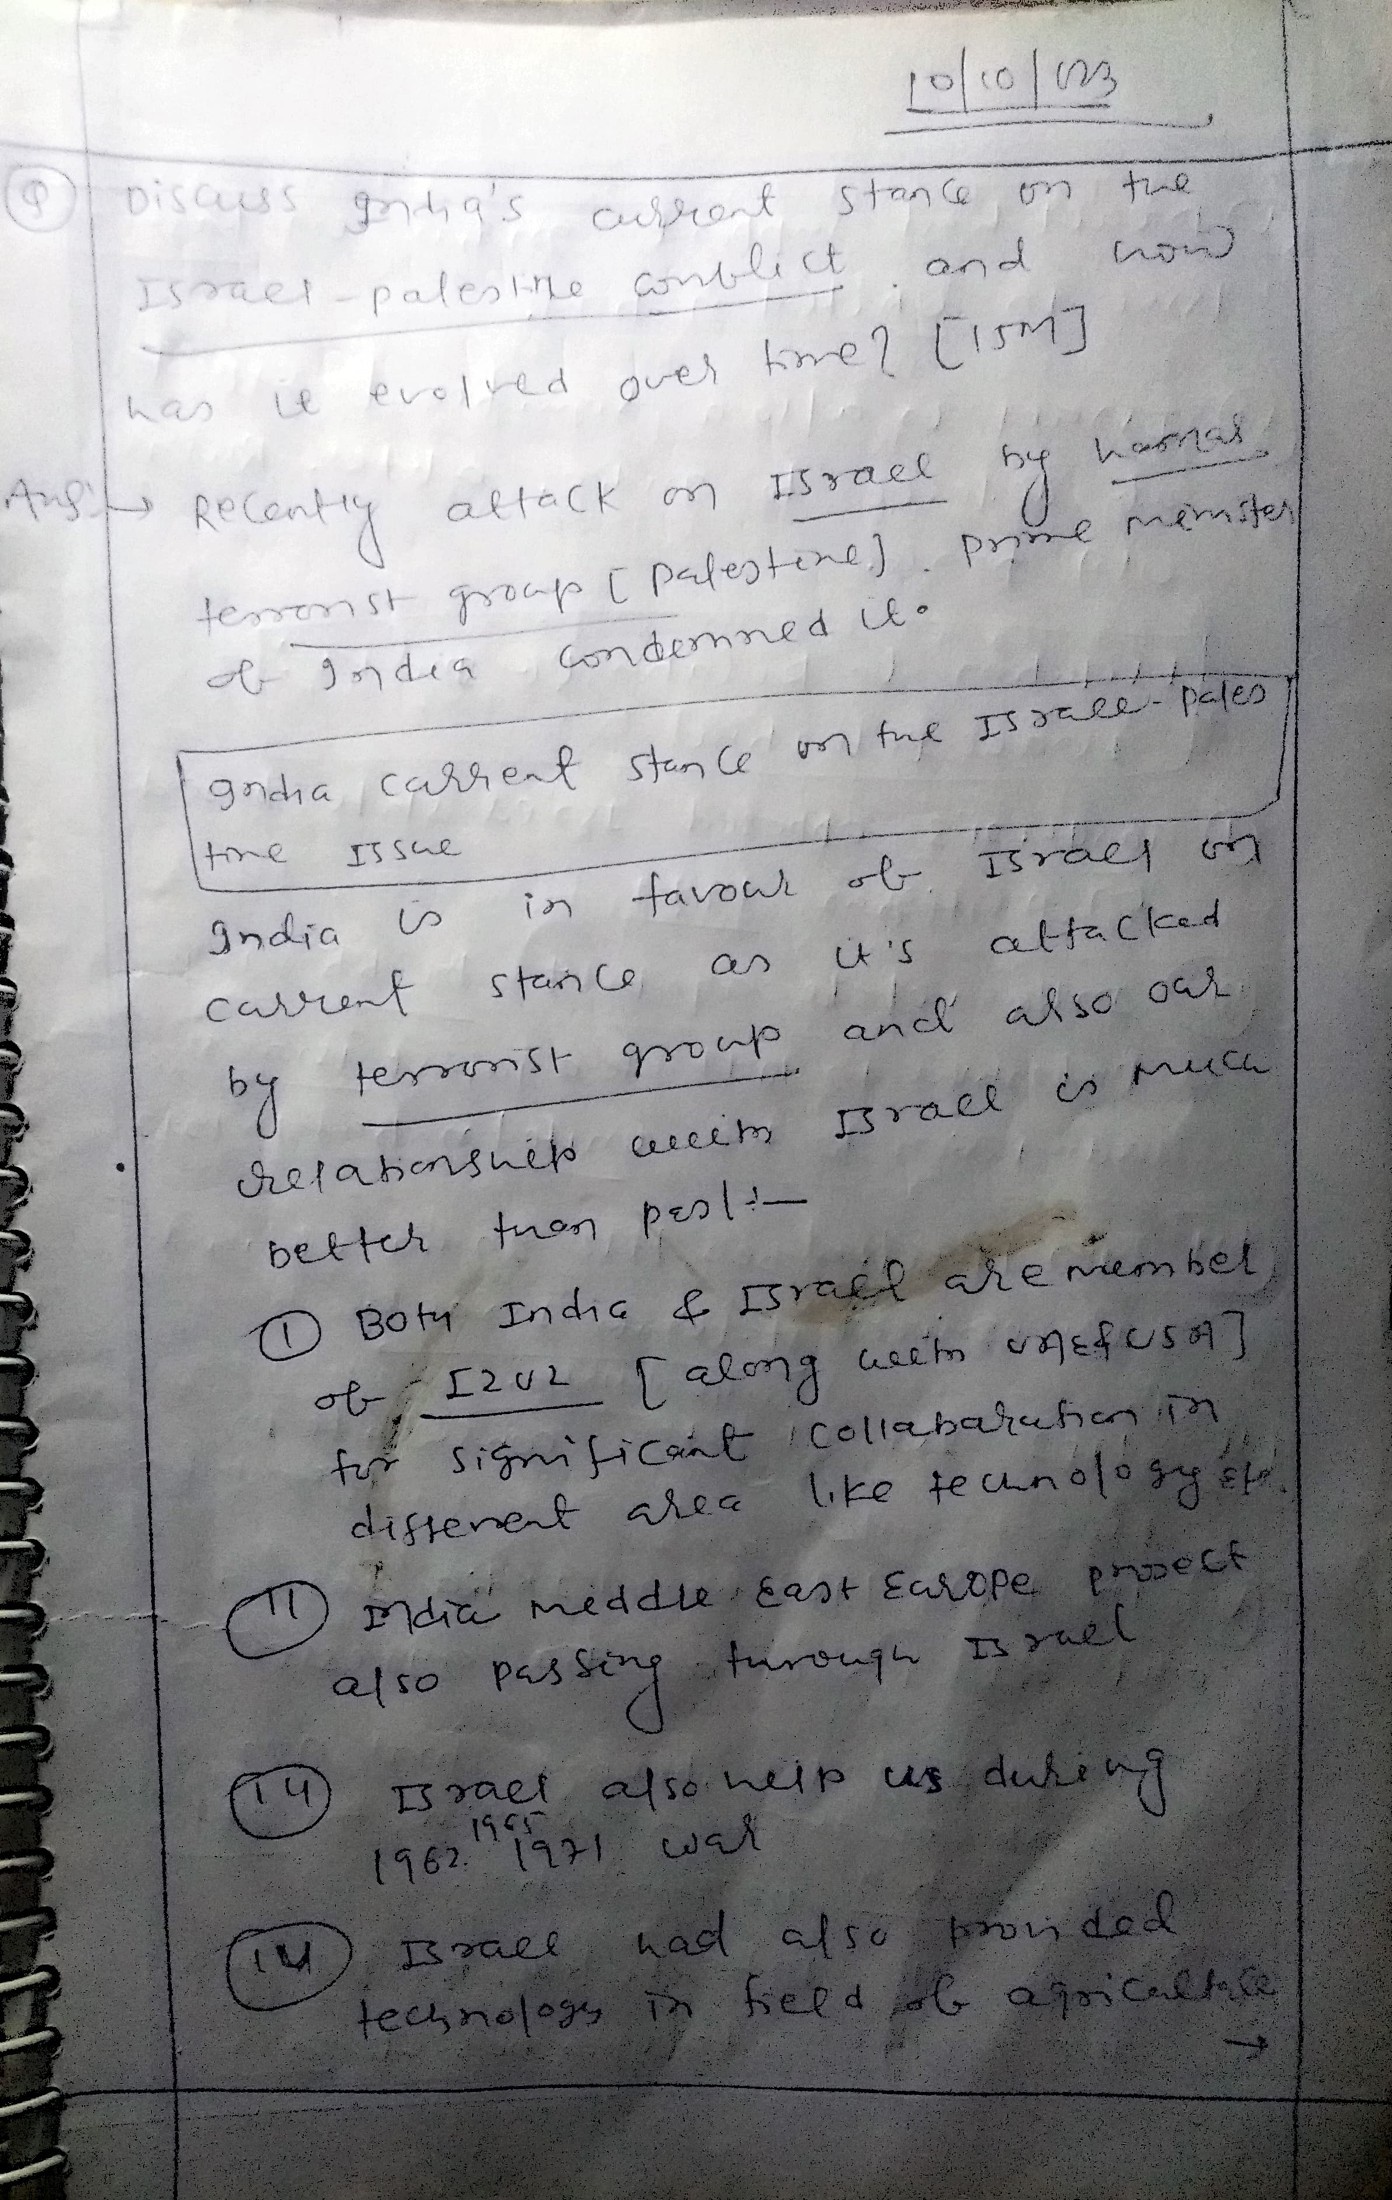 10/10/023
Q Discuss India's current stance on the
Israel-palestine conflict and how
has it evolved over time? [15M]
Ans:→ Recently attack on Israel by hamas
terrorist group [palestine]. prime meinster
of India condemned it.
India current stance on the Israel-pales
tine Issue
India is in favour of Israel on
current stance as it's attacked
by terrorist group and also our
relationship with Israel is much
better than past:-
① Both India & Israel are member
of I2U2 [along with UAE & USA]
for significant collabaration in
different area like technology etc.
II India meddle East Europe project
also passing through Israel
Israel also help us during
1962 1965 1971 war
Israel had also provided
technology in field of agriculture
→